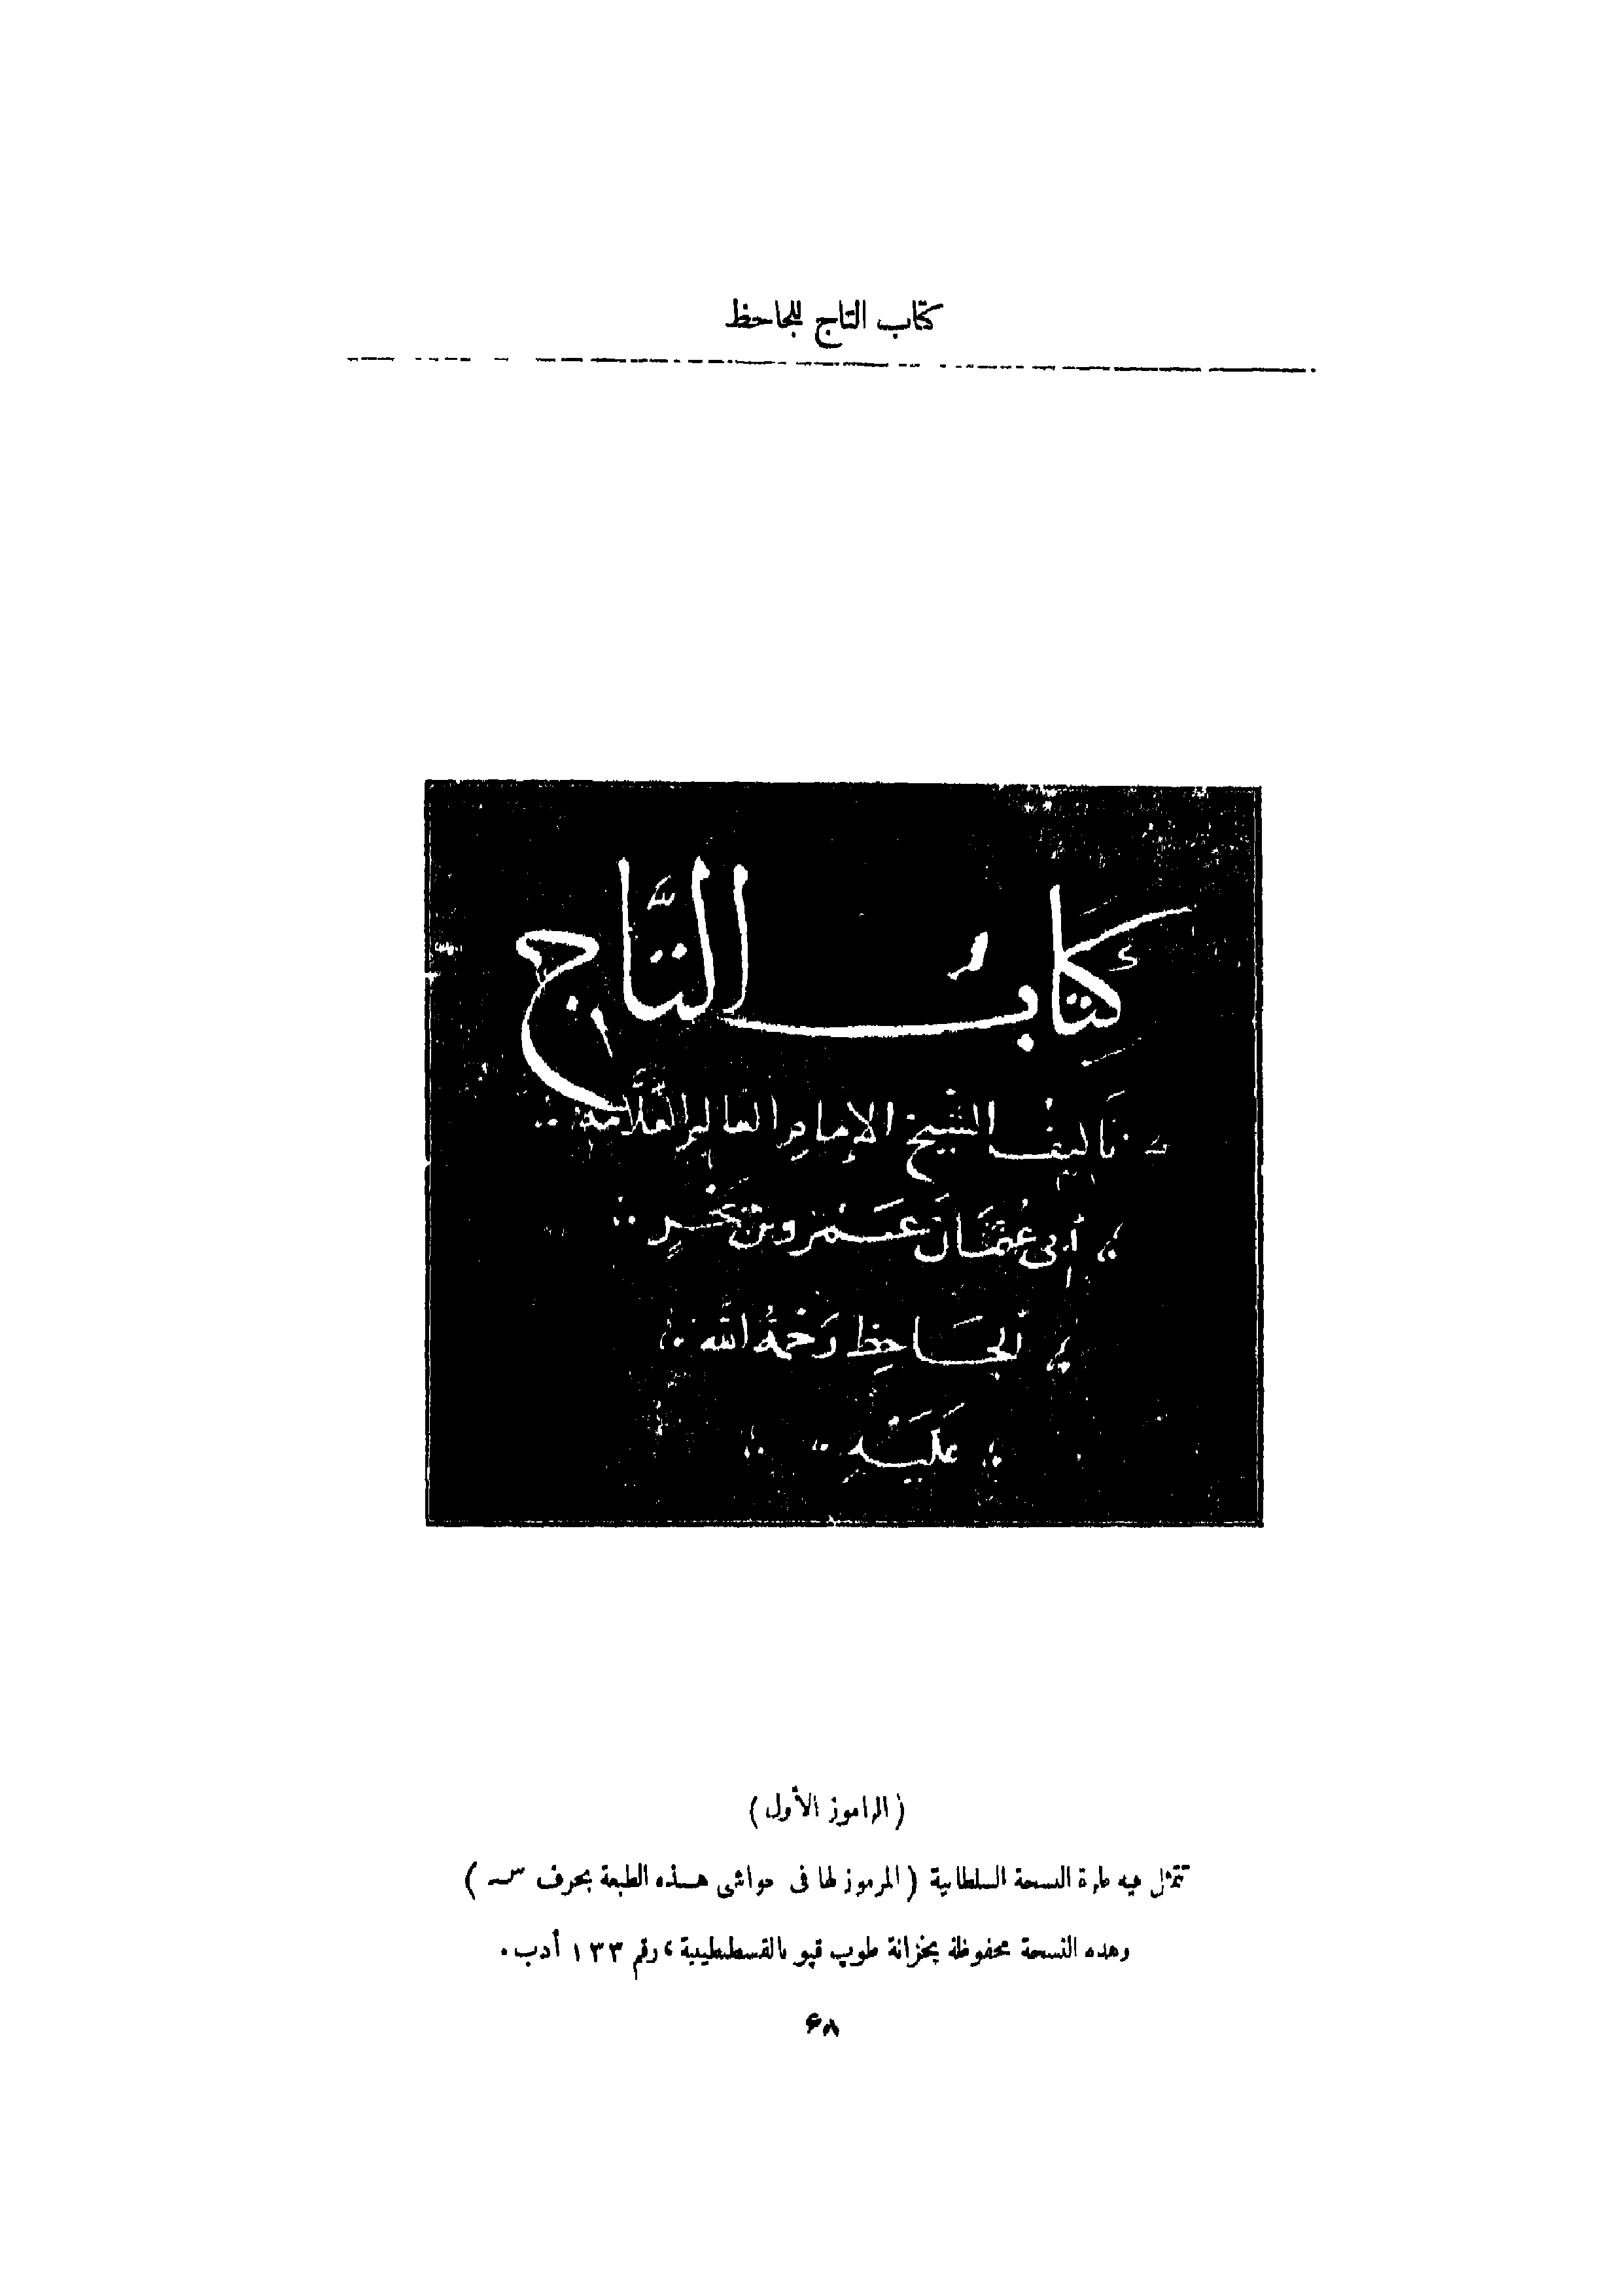 كتاب التاج للجاحظ
كِتَابُ التَّاجِ
تأليف الشيخ الإمام العالم العلّامة
أبي عُثمَان عَمْرو بن بَحْرٍ
الجَاحِظِ رَحْمَةُ الله
عَلَيْهِ
(الراموز الأول)
تتمثل فيه طرة النسخة السلطانية (المرموز لها فى حواشى هذه الطبعة بحرف سـ)
وهذه النسخة محفوظة بخزانة طوپ قپو بالقسطنطينية، رقم ١٣٣ أدب.
٦٨